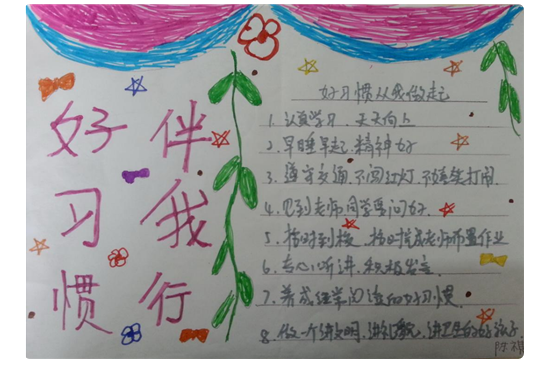 好 伴
习 我
惯 行
好习惯从我做起
1. 认真学习、天天向上
2. 早睡早起、精神好
3. 遵守交通、不闯红灯、不追逐打闹
4. 见到老师同学要问好.
5. 按时到校、按时完成老师布置作业
6. 专心听讲、积极发言
7. 养成经常阅读的好习惯
8. 做一个讲文明、讲礼貌、讲卫生的好孩子.
陈